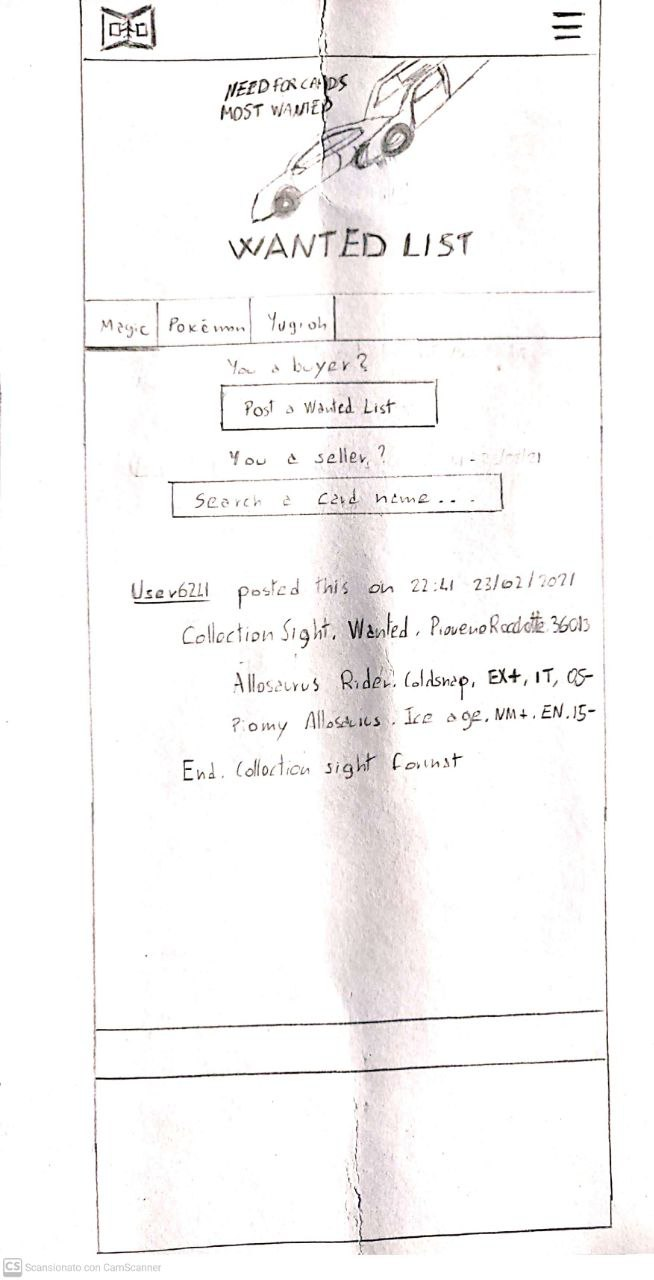 NEED FOR CARDS
MOST WANTED
WANTED LIST
Magic Pokémon Yugioh
You a buyer?
Post a Wanted List
You a seller?
Search a card name...
User6241 posted this on 22:41 23/02/2021
Collection Sight. Wanted. Piovene Rocchette 36013
Allosaurus Rider. Coldsnap, EX+, IT, 05-
Allosaurus. Ice age. NM+. EN. 15-
End. Collection sight format
CS Scansionato con CamScanner